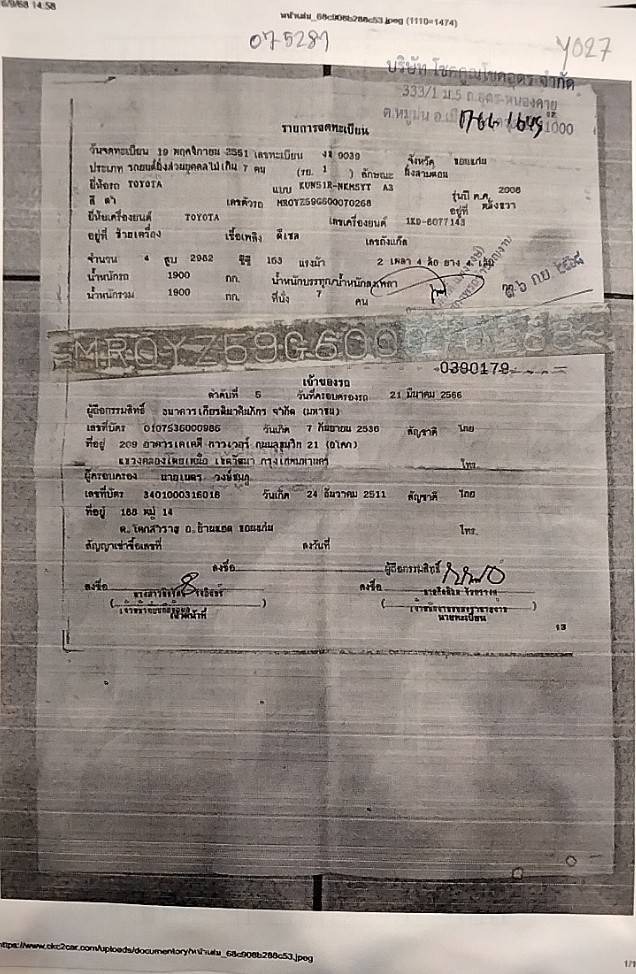 6/9/68 14:58
หน้าเล่ม_68c906b288c53.jpeg (1110×1474)
075281
Y027
บริษัท โชคคูณโชคอุดร จำกัด
333/1 ม.5 ถ.อุดร-หนองคาย
ต.หมูม่น อ.เมือง 41000
รายการจดทะเบียน
วันจดทะเบียน 19 พฤศจิกายน 2551 เลขทะเบียน 9039 จังหวัด ขอนแก่น
ประเภท รถยนต์นั่งส่วนบุคคลไม่เกิน 7 คน (รย. 1 ) ลักษณะ นั่งสามตอน
ยี่ห้อรถ TOYOTA แบบ KUN51R-NKMSYT A3 รุ่นปี ค.ศ. 2008
สี ดำ เลขตัวรถ MR0YZ59G600070268 อยู่ที่
ยี่ห้อเครื่องยนต์ TOYOTA เลขเครื่องยนต์ 1KD-6077143
อยู่ที่ ซ้ายเครื่อง เชื้อเพลิง ดีเซล เลขถังแก๊ส
จำนวน 4 สูบ 2982 ซีซี 163 แรงม้า 2 เพลา 4 ล้อ ยาง 4 เส้น
น้ำหนักรถ 1900 กก. น้ำหนักบรรทุก/น้ำหนักลงเพลา
น้ำหนักรวม 1900 กก. ที่นั่ง 7 คน
MR0YZ59G600070268
0390179
เจ้าของรถ
ลำดับที่ 5 วันที่ครอบครองรถ 21 มีนาคม 2566
ผู้ถือกรรมสิทธิ์ ธนาคารเกียรตินาคินภัทร จำกัด (มหาชน)
เลขที่บัตร 0107536000986 วันเกิด 7 กันยายน 2536 สัญชาติ ไทย
ที่อยู่ 209 อาคารเคเคพี ทาวเวอร์ ถนนสุขุมวิท 21 (อโศก)
แขวงคลองเตยเหนือ เขตวัฒนา กรุงเทพมหานคร โทร.
ผู้ครอบครอง นายเนตร วงษ์ชมภู
เลขที่บัตร 3401000316018 วันเกิด 24 ธันวาคม 2511 สัญชาติ ไทย
ที่อยู่ 188 หมู่ 14
ต. โคกสำราญ อ. บ้านแฮด ขอนแก่น โทร.
สัญญาเช่าซื้อเลขที่ ลงวันที่
ลงชื่อ ผู้ถือกรรมสิทธิ์
ลงชื่อ ลงชื่อ
เจ้าหน้าที่ นายทะเบียน
13
https://www.ckc2car.com/uploads/documentory/หน้าเล่ม_68c906b288c53.jpeg
1/1